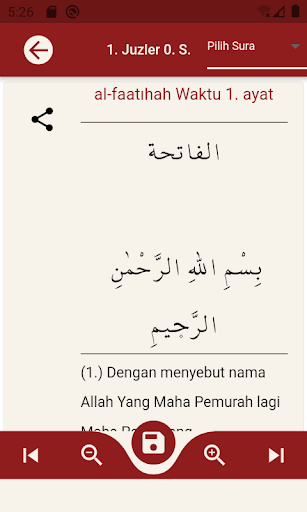 5:26
1. Juzler 0. S.
Pilih Sura
al-faatıhah Waktu 1. ayat
الفاتحة
بِسْمِ اللهِ الرَّحْمٰنِ
الرَّحِيمِ
(1.) Dengan menyebut nama
Allah Yang Maha Pemurah lagi